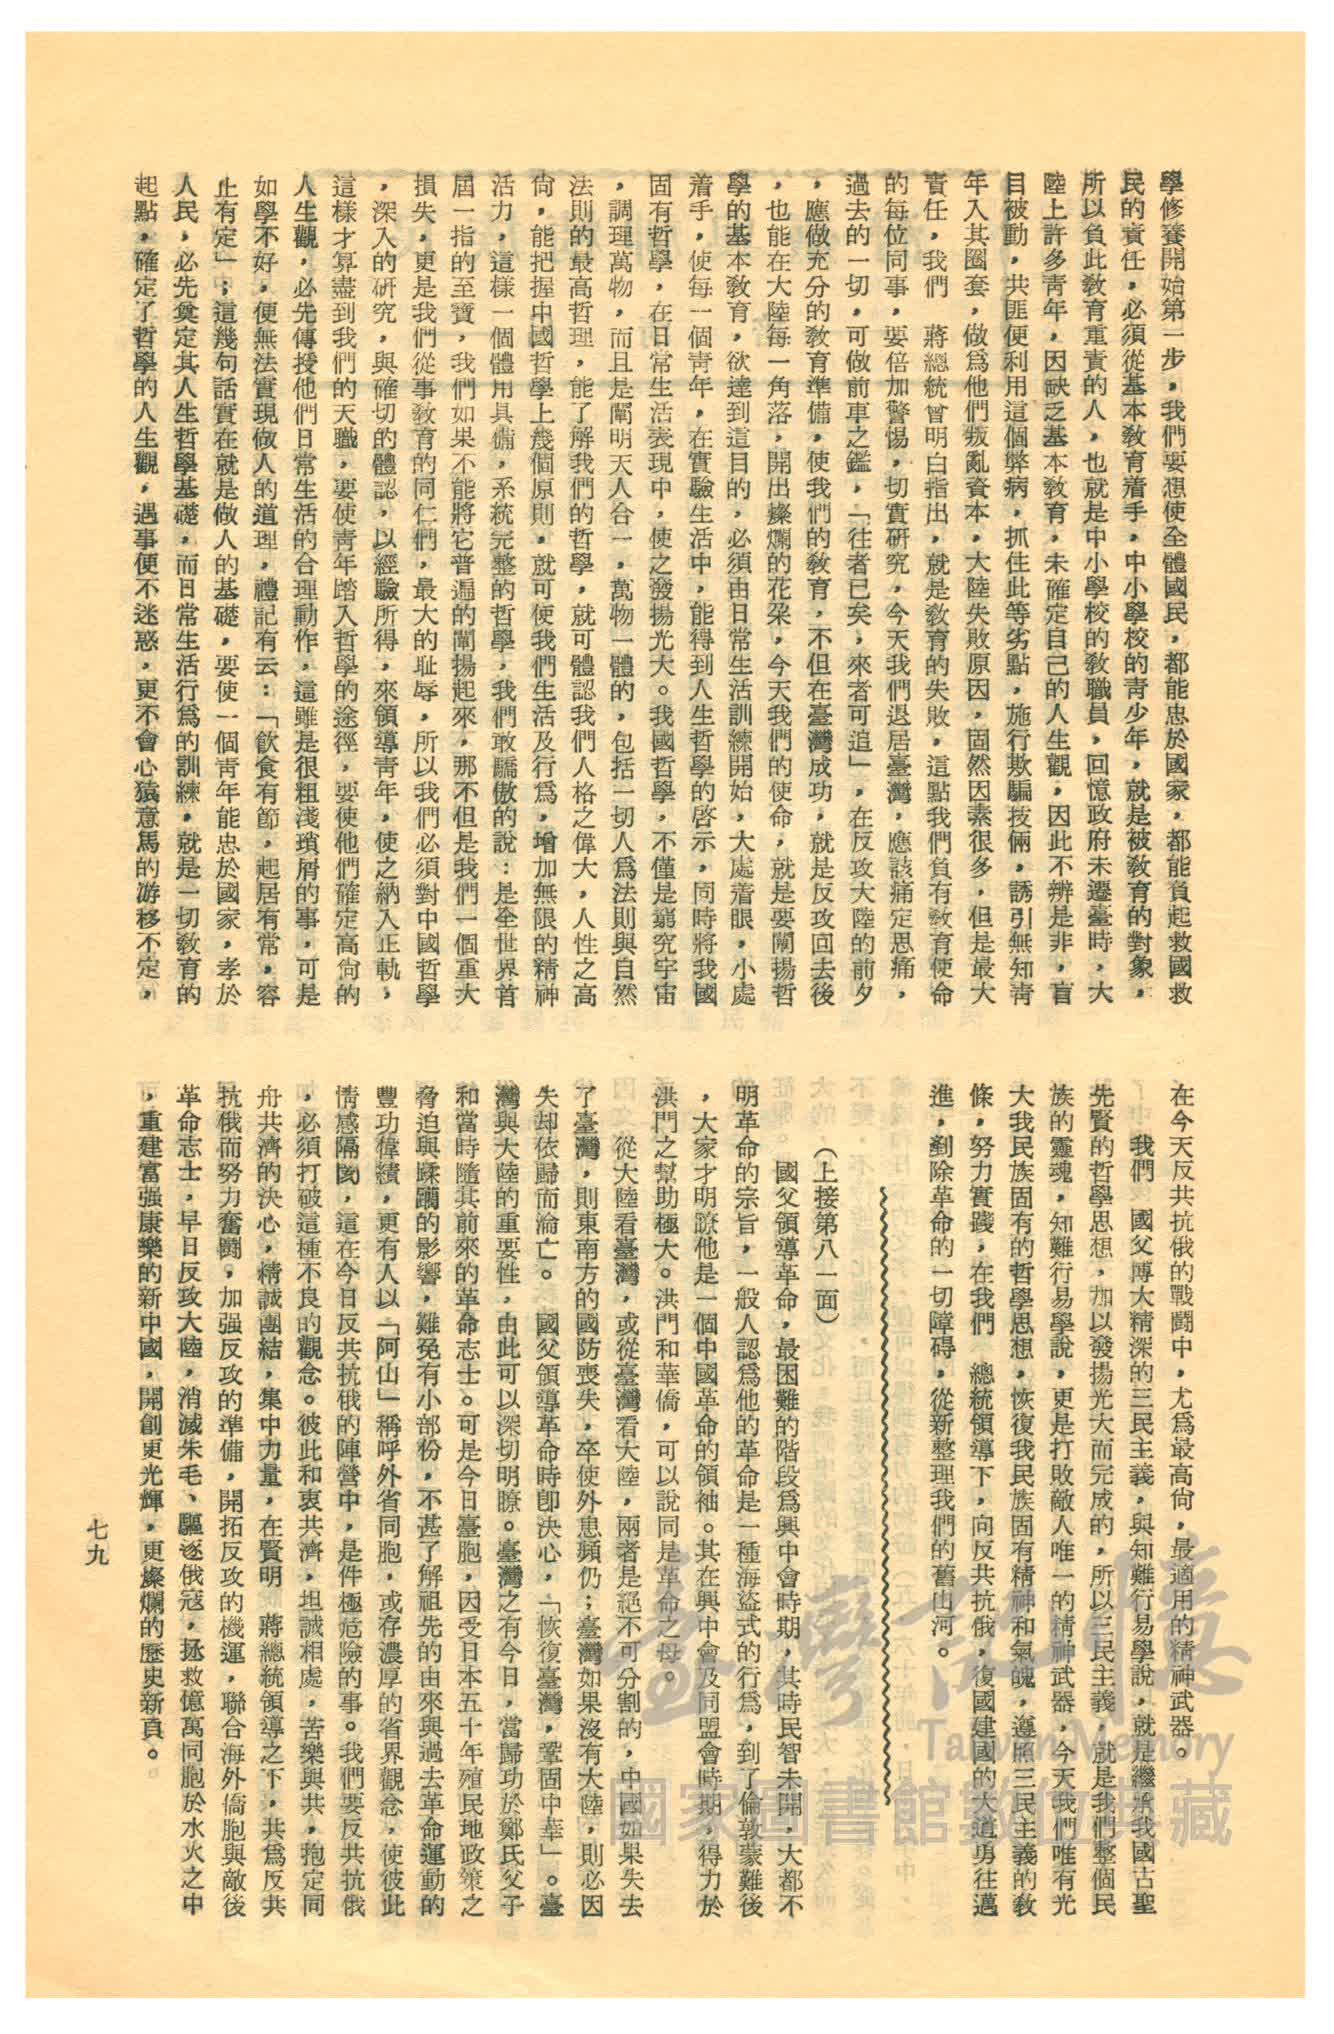 學修養開始第一步，我們要想使全體國民，都能忠於國家，都能負起救國救
民的責任，必須從基本教育着手，中小學校的青少年，就是被教育的對象，
所以負此教育重責的人，也就是中小學校的教職員，回憶政府未遷臺時，大
陸上許多青年，因缺乏基本教育，未確定自己的人生觀，因此不辨是非，盲
目被動，共匪便利用這個弊病，抓住此等劣點，施行欺騙技倆，誘引無知青
年入其圈套，做爲他們叛亂資本，大陸失敗原因，固然因素很多，但是最大
責任，我們　蔣總統曾明白指出，就是教育的失敗，這點我們負有教育使命
的每位同事，要倍加警惕，切實研究，今天我們退居臺灣，應該痛定思痛，
過去的一切，可做前車之鑑，「往者已矣，來者可追」，在反攻大陸的前夕
，應做充分的教育準備，使我們的教育，不但在臺灣成功，就是反攻回去後
，也能在大陸每一角落，開出燦爛的花朶，今天我們的使命，就是要闡揚哲
學的基本教育，欲達到這目的，必須由日常生活訓練開始，大處着眼，小處
着手，使每一個青年，在實驗生活中，能得到人生哲學的啓示，同時將我國
固有哲學，在日常生活表現中，使之發揚光大。我國哲學，不僅是窮究宇宙
，調理萬物，而且是闡明天人合一，萬物一體的，包括一切人爲法則與自然
法則的最高哲理，能了解我們的哲學，就可體認我們人格之偉大，人性之高
尙，能把握中國哲學上幾個原則，就可使我們生活及行爲，增加無限的精神
活力，這樣一個體用具備，系統完整的哲學，我們敢驕傲的說：是全世界首
屆一指的至寶，我們如果不能將它普遍的闡揚起來，那不但是我們一個重大
損失，更是我們從事教育的同仁們，最大的耻辱，所以我們必須對中國哲學
，深入的研究，與確切的體認，以經驗所得，來領導青年，使之納入正軌，
這樣才算盡到我們的天職，要使青年踏入哲學的途徑，要使他們確定高尙的
人生觀，必先傳授他們日常生活的合理動作，這雖是很粗淺瑣屑的事，可是
如學不好，便無法實現做人的道理，禮記有云：「飲食有節，起居有常，容
止有定」；這幾句話實在就是做人的基礎，要使一個青年能忠於國家，孝於
人民，必先奠定其人生哲學基礎，而日常生活行爲的訓練，就是一切教育的
起點，確定了哲學的人生觀，遇事便不迷惑，更不會心猿意馬的游移不定，
在今天反共抗俄的戰鬪中，尤爲最高尙，最適用的精神武器。
我們　國父博大精深的三民主義，與知難行易學說，就是繼承我國古聖
先賢的哲學思想，加以發揚光大而完成的，所以三民主義，就是我們整個民
族的靈魂，知難行易學說，更是打敗敵人唯一的精神武器，今天我們唯有光
大我民族固有的哲學思想，恢復我民族固有精神和氣魄，遵照三民主義的敎
條，努力實踐，在我們　總統領導下，向反共抗俄，復國建國的大道勇往邁
進，剷除革命的一切障碍，從新整理我們的舊山河。
（上接第八一面）
國父領導革命，最困難的階段爲興中會時期，其時民智未開，大都不
明革命的宗旨，一般人認爲他的革命是一種海盜式的行爲，到了倫敦蒙難後
，大家才明瞭他是一個中國革命的領袖。其在興中會及同盟會時期，得力於
洪門之幫助極大。洪門和華僑，可以說同是革命之母。
從大陸看臺灣，或從臺灣看大陸，兩者是絕不可分割的，中國如果失去
了臺灣，則東南方的國防喪失，卒使外患頻仍；臺灣如果沒有大陸，則必因
失却依歸而淪亡。　國父領導革命時卽決心，「恢復臺灣，鞏固中華」。臺
灣與大陸的重要性，由此可以深切明瞭。臺灣之有今日，當歸功於鄭氏父子
和當時隨其前來的革命志士。可是今日臺胞，因受日本五十年殖民地政策之
脅迫與蹂躪的影響，難免有小部份，不甚了解祖先的由來與過去革命運動的
豐功偉績，更有人以「阿山」稱呼外省同胞，或存濃厚的省界觀念，使彼此
情感隔閡，這在今日反共抗俄的陣營中，是件極危險的事。我們要反共抗俄
，必須打破這種不良的觀念。彼此和衷共濟，坦誠相處，苦樂與共，抱定同
舟共濟的決心，精誠團結，集中力量，在賢明　蔣總統領導之下，共爲反共
抗俄而努力奮鬪，加强反攻的準備，開拓反攻的機運，聯合海外僑胞與敵後
革命志士，早日反攻大陸，消滅朱毛、驅逐俄寇，拯救億萬同胞於水火之中
，重建富强康樂的新中國，開創更光輝，更燦爛的歷史新頁。
七九
臺灣記憶
Taiwan Memory
國家圖書館數位典藏